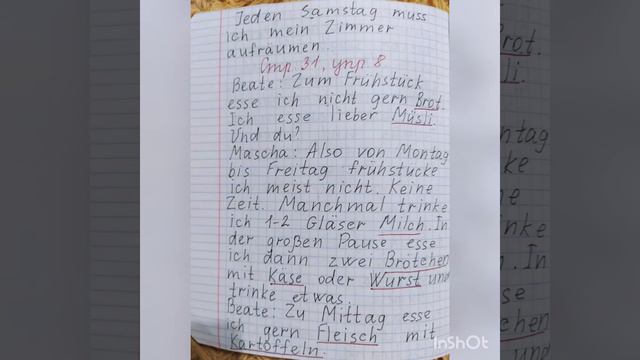 Jeden Samstag muss
ich mein Zimmer
aufräumen.
Стр 31, упр. 8
Beate: Zum Frühstück
esse ich nicht gern Brot.
Ich esse lieber Müsli.
Und du?
Mascha: Also von Montag
bis Freitag frühstücke
ich meist nicht. Keine
Zeit. Manchmal trinke
ich 1-2 Gläser Milch. In
der großen Pause esse
ich dann zwei Brötchen
mit Käse oder Wurst und
trinke etwas.
Beate: Zu Mittag esse
ich gern Fleisch mit
Kartoffeln.
InShOt